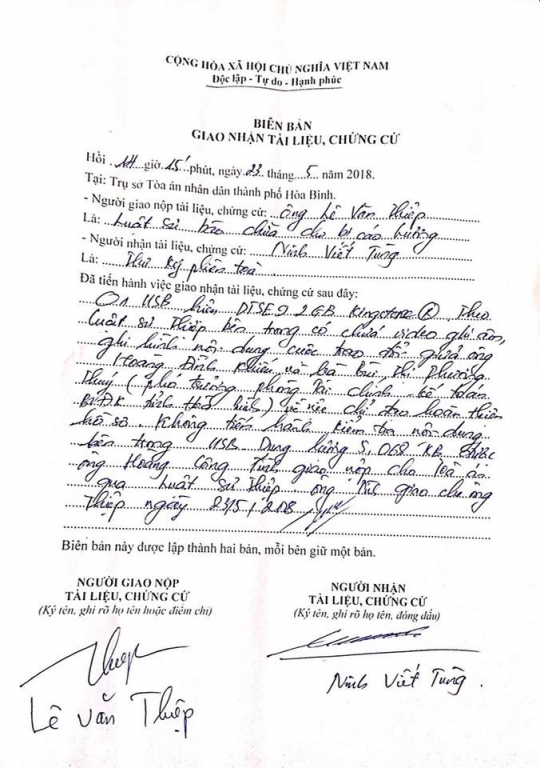 CỘNG HÒA XÃ HỘI CHỦ NGHĨA VIỆT NAM
Độc lập - Tự do - Hạnh phúc
BIÊN BẢN
GIAO NHẬN TÀI LIỆU, CHỨNG CỨ
Hồi 14 giờ 15 phút, ngày 23 tháng 5 năm 2018.
Tại: Trụ sở Tòa án nhân dân thành phố Hòa Bình.
- Người giao nộp tài liệu, chứng cứ: ông Lê Văn Thiệp
Là: Luật sư bào chữa cho bị cáo Lương
- Người nhận tài liệu, chứng cứ: Ninh Viết Tùng
Là: Thư ký phiên toà
Đã tiến hành việc giao nhận tài liệu, chứng cứ sau đây:
01 USB hiệu DTSE9 2GB Kingston ® Theo
Luật sư Thiệp bên trong có chứa video ghi âm,
ghi hình nội dung cuộc trao đổi giữa ông
Hoàng Đình Khiếu và bà Bùi Thị Phương
Thuý (phó trưởng phòng Tài chính kế toán
BVĐK tỉnh Hoà Bình) về việc chỉ đạo hoàn thiện
hồ sơ. Không tiến hành kiểm tra nội dung
bên trong USB. Dung lượng 5,068 KB được
ông Hoàng Công Tình giao nộp cho Toà án
qua Luật sư Thiệp ông giao cho ông
Thiệp ngày 23/5/2018
Biên bản này được lập thành hai bản, mỗi bên giữ một bản.
NGƯỜI GIAO NỘP
TÀI LIỆU, CHỨNG CỨ
(Ký tên, ghi rõ họ tên hoặc điểm chỉ)
Thiệp
Lê Văn Thiệp
NGƯỜI NHẬN
TÀI LIỆU, CHỨNG CỨ
(Ký tên, ghi rõ họ tên, đóng dấu)
Ninh Viết Tùng.